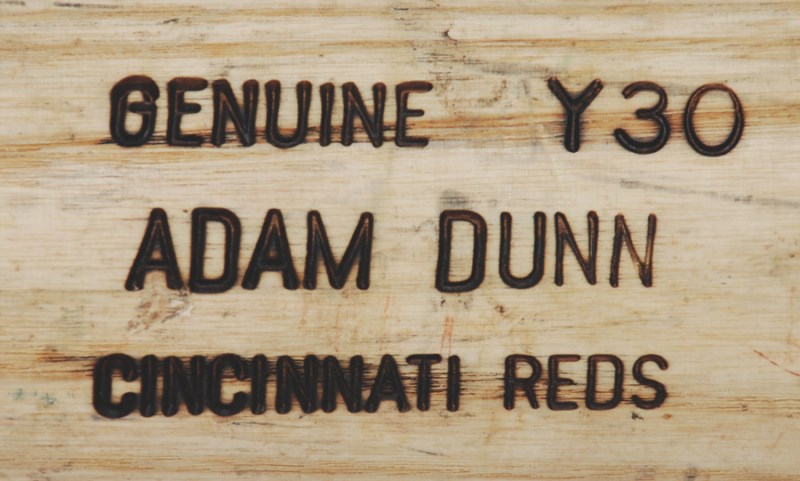 GENUINE Y30
ADAM DUNN
CINCINNATI REDS